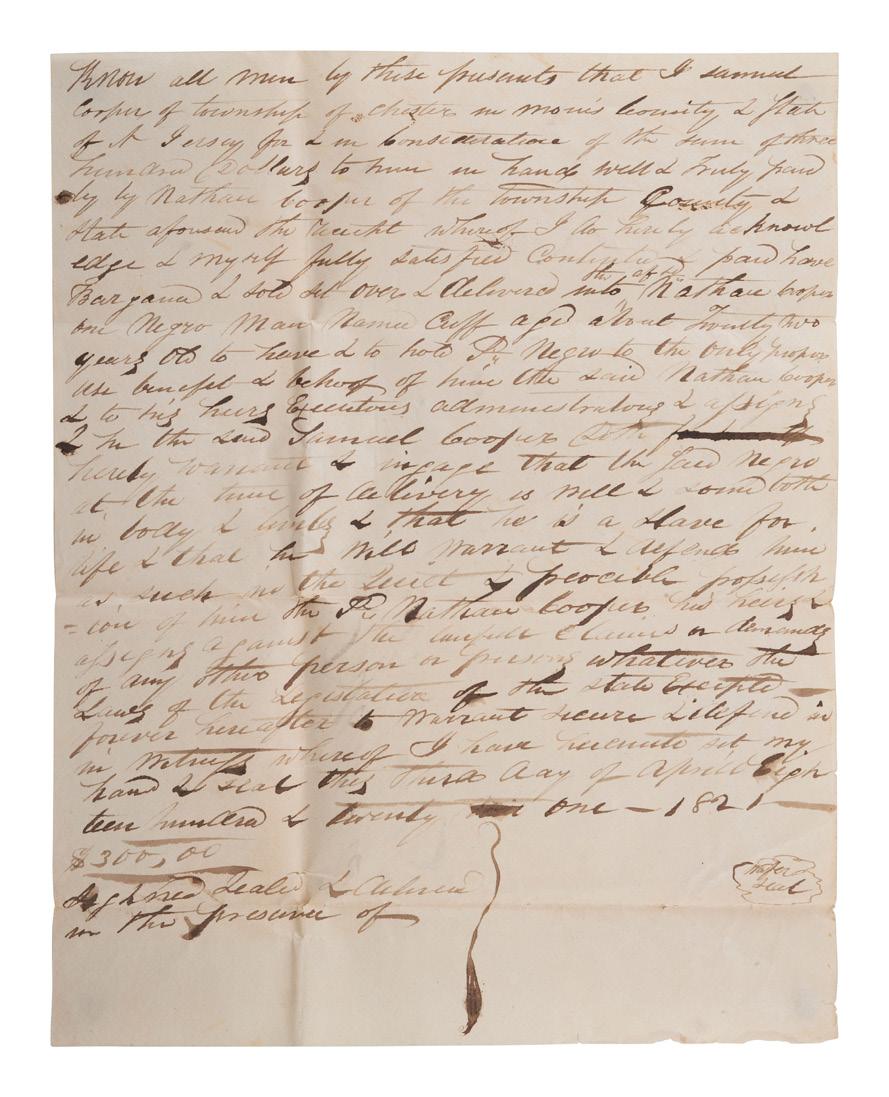 Know all men by these presents that I samuel
Cooper of township of Chester in Morris County & State
of N Jersey for & in Consideration of the sum of three
hundred Dollars to him in hand well & Truly paid
by Nathan Cooper of the township County &
State aforesaid the receipt whereof I do hereby acknowl
edge & myself fully satisfied Contented & paid have
Bargand & sold set over & delivered into the afsd Nathan Cooper
one Negro Man Named Cuff aged about Twenty two
years old to have & to hold sd Negro to the only proper
use benefit & behoof of him the said Nathan Cooper
& to his heirs Executors administrators & assigns
& he the said Samuel Cooper doth
hereby warrant & ingage that the said Negro
at the time of delivery is well & sound both
in body & limbs & that he is a slave for
life & that he will warrant & defend him
as such in the Quiet & peaceible possess
-ion of him the sd Nathan Cooper his heirs &
assigns against the lawfull Claims or demands
of any other person or persons whatever the
Laws of the Legislature of the state Excepted
forever hereafter to warrant secure & defend in
in Witness whereof I have hereunto set my
hand & seal this third day of April Eigh
teen hundred & twenty one - 1821
$300,00
Sighned Sealed & delivered
in the presence of
seal